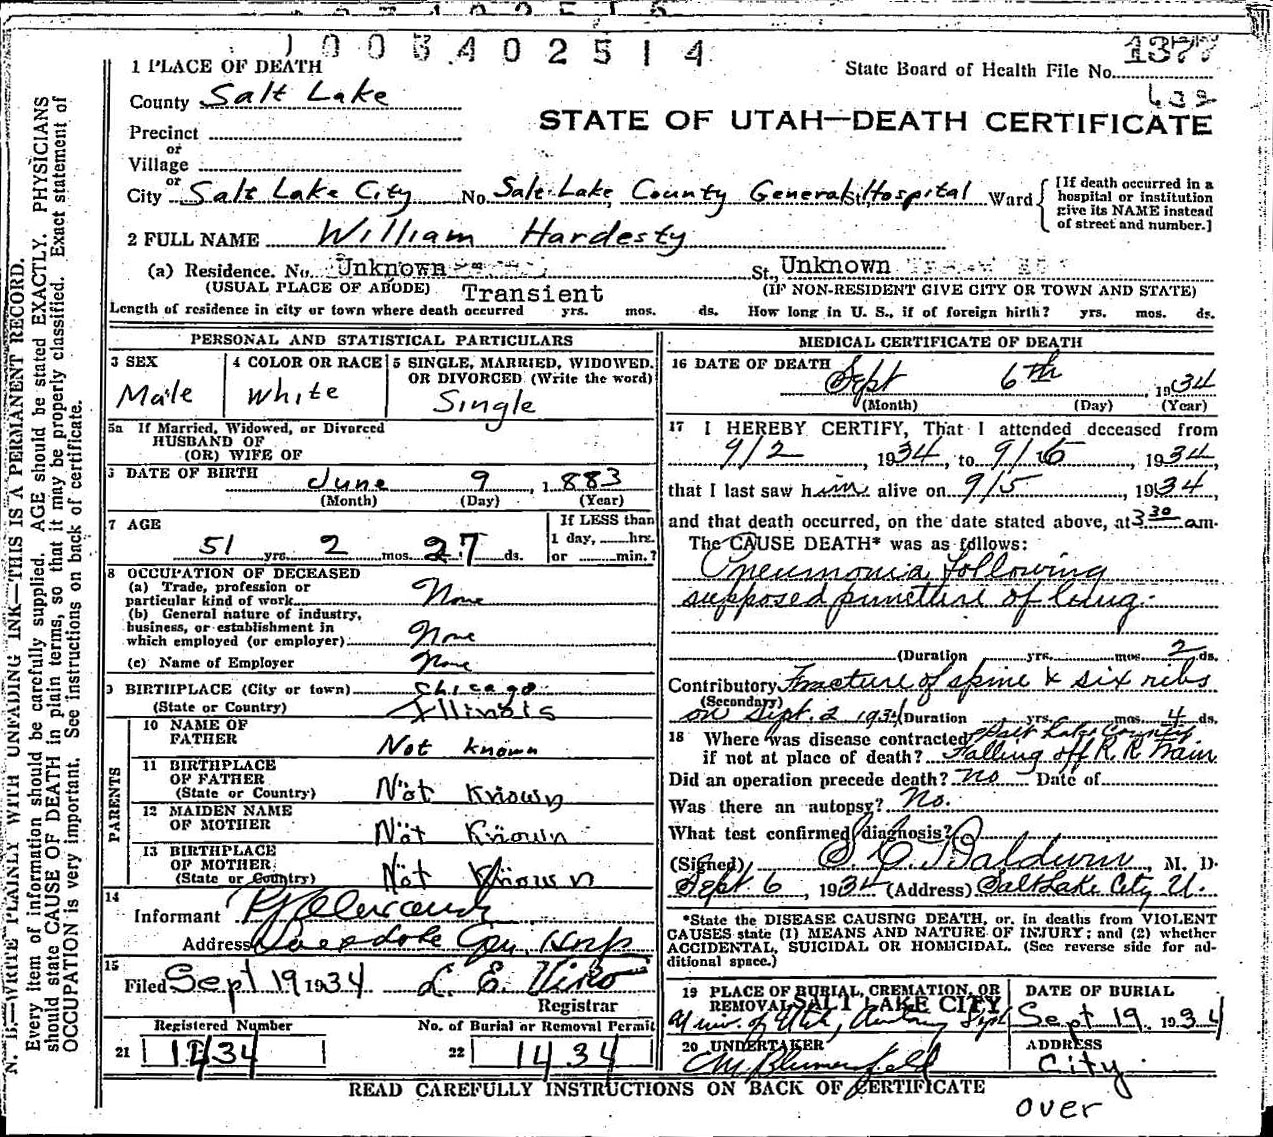 1003402514
1377
State Board of Health File No.
632
1 PLACE OF DEATH
County Salt Lake
STATE OF UTAH—DEATH CERTIFICATE
Precinct
or
Village
or
City Salt Lake City No. Salt Lake County General St., Hospital Ward
[If death occurred in a hospital or institution give its NAME instead of street and number.]
2 FULL NAME William Hardesty
(a) Residence. No. Unknown St., Unknown
(USUAL PLACE OF ABODE) Transient (IF NON-RESIDENT GIVE CITY OR TOWN AND STATE)
Length of residence in city or town where death occurred yrs. mos. ds. How long in U. S., if of foreign birth? yrs. mos. ds.
PERSONAL AND STATISTICAL PARTICULARS
3 SEX
Male
4 COLOR OR RACE
White
5 SINGLE, MARRIED, WIDOWED,
OR DIVORCED (Write the word)
Single
5a If Married, Widowed, or Divorced
HUSBAND OF
(OR) WIFE OF
6 DATE OF BIRTH June 9, 1883
(Month) (Day) (Year)
7 AGE
51 yrs. 2 mos. 27 ds.
If LESS than
1 day, hrs.
or min.?
8 OCCUPATION OF DECEASED
(a) Trade, profession or
particular kind of work None
(b) General nature of industry,
business, or establishment in
which employed (or employer) None
(c) Name of Employer None
9 BIRTHPLACE (City or town) Chicago
(State or Country) Illinois
PARENTS
10 NAME OF
FATHER Not known
11 BIRTHPLACE
OF FATHER
(State or Country) Not Known
12 MAIDEN NAME
OF MOTHER Not Known
13 BIRTHPLACE
OF MOTHER
(State or Country) Not Known
14
Informant
Address
15
Filed Sept 19 1934 L. E. Viko
Registrar
Registered Number
21 1434
No. of Burial or Removal Permit
22 1434
MEDICAL CERTIFICATE OF DEATH
16 DATE OF DEATH
Sept 6th, 1934
(Month) (Day) (Year)
17 I HEREBY CERTIFY, That I attended deceased from
9/2, 1934, to 9/6, 1934,
that I last saw him alive on 9/5, 1934,
and that death occurred, on the date stated above, at 3 30 am.
The CAUSE DEATH* was as follows:
Pneumonia following
supposed puncture of lung.
(Duration yrs. mos. 2 ds.
Contributory Fracture of spine & six ribs
(Secondary)
on Sept. 2 1934 (Duration yrs. mos. 4 ds.
18 Where was disease contracted Salt Lake County
if not at place of death? Falling off R.R. Train
Did an operation precede death? No Date of
Was there an autopsy? No.
What test confirmed diagnosis?
(Signed) S. C. Baldwin, M. D.
Sept. 6, 1934 (Address) Salt Lake City U.
*State the DISEASE CAUSING DEATH, or, in deaths from VIOLENT
CAUSES state (1) MEANS AND NATURE OF INJURY; and (2) whether
ACCIDENTAL, SUICIDAL OR HOMICIDAL. (See reverse side for ad-
ditional space.)
19 PLACE OF BURIAL, CREMATION, OR
REMOVAL SALT LAKE CITY
Univ. of Utah, Anatomy Dept
DATE OF BURIAL
Sept 19, 1934
20 UNDERTAKER
C. M. Blumenfield
ADDRESS
City
READ CAREFULLY INSTRUCTIONS ON BACK OF CERTIFICATE
over
N. B.—WRITE PLAINLY WITH UNFADING INK—THIS IS A PERMANENT RECORD.
Every item of information should be carefully supplied. AGE should be stated EXACTLY. PHYSICIANS
should state CAUSE OF DEATH in plain terms, so that it may be properly classified. Exact statement of
OCCUPATION is very important. See instructions on back of certificate.